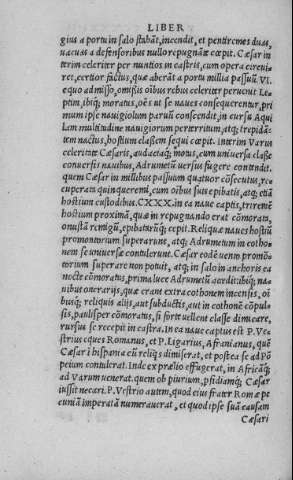 LIBER
gius a portu in salo stabāt, incendit, et pentiremes duas,
uacuas a defensoribus nullo repugnāte cœpit. Cæsar in
terim celeriter per nuntios in castris, cum opera circuiret,
certior factus, quæ aberāt a portu millia passuū. VI.
equo admisso, omissis oībus rebus celeriter peruenit Leptim,
ibiq; moratus, oēs ut se naues consequerentur, pri
mum ipse nauigiolum paruū conscendit, in cursu Aqui
lam multitudine nauigiorum perterritum, atq; trepidātem
nactus, hostium classem sequi cœpit. Interim Varus
celeritate Cæsaris, audaciaq; motus, cum uniuersa classe
conuersis nauibus, Adrumetū uersus fugere contendit.
quem Cæsar in millibus passuum quatuor cōsecutus, re
cuperata quinqueremi, cum oībus suis epibatis, atq; etiā
hostium custodibus. CXXX. in ea naue captis, triremē
hostium proximā, quæ in repugnando erat cōmoratam,
onustā remigū, epibatarūq; cepit. Reliquæ naues hostiū
promontorium superarunt, atq; Adrumetum in cothonem
se uniuersæ contulerunt. Cæsar eodē uento promōtorium
superare non potuit, atq; in salo in anchoris ea
nocte cōmoratus, prima luce Adrumetū accedit: ibiq; na
uibus onerarijs, quæ erant extra cothonem incensis, oībusq;
reliquis alijs, aut subductis, aut in cothonē cōpulsis,
paulisper cōmoratus, si forte uellent classe dimicare,
rursus se recepit in castra. In ea naue captus est P. Ve
strius eques Romanus, et P. Ligarius, Afranianus, quē
Cæsar ī hispania cū reliqs dimiserat, et postea se ad Pōpeium
contulerat. Inde ex prælio effugerat, in Africāq;
ad Varum uenerat. quem ob piurium, pfidiamq; Cæsar
iussit necari. P. Vestrio autem, quod eius frater Romæ pe
cuniā imperatā numerauerat, et quod ipse suā causam
Cæsari